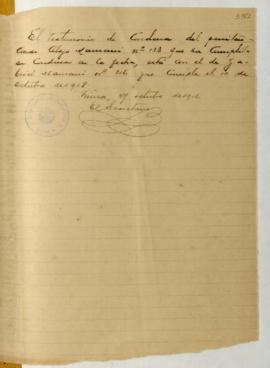 El testimonio de Condena del peniten-
ciado Alejo Mamani nº 123 que ha cumplido
su Condena en la fecha, está con el de Ga-
briel Mamani nº 216 que cumple el 10 de
Octubre de 1918.
octubre de 191
El Secretario